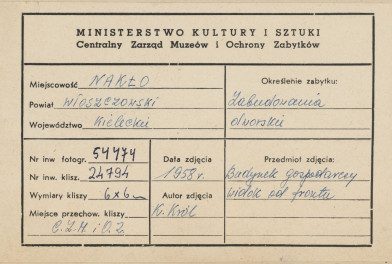 MINISTERSTWO KULTURY I SZTUKI
Centralny Zarząd Muzeów i Ochrony Zabytków
Miejscowość NAKŁO
Określenie zabytku:
Powiat Włoszczowski
Zabudowania
Województwo Kieleckie
dworskie
Nr inw fotogr. 54474
Data zdjęcia
Przedmiot zdjęcia:
Nr inw. klisz. 24794
1958 r.
Budynek gospodarczy
Wymiary kliszy 6x6
Autor zdjęcia
widok od frontu
Miejsce przechow. kliszy
K. Król
C.Z.M. i O.Z.